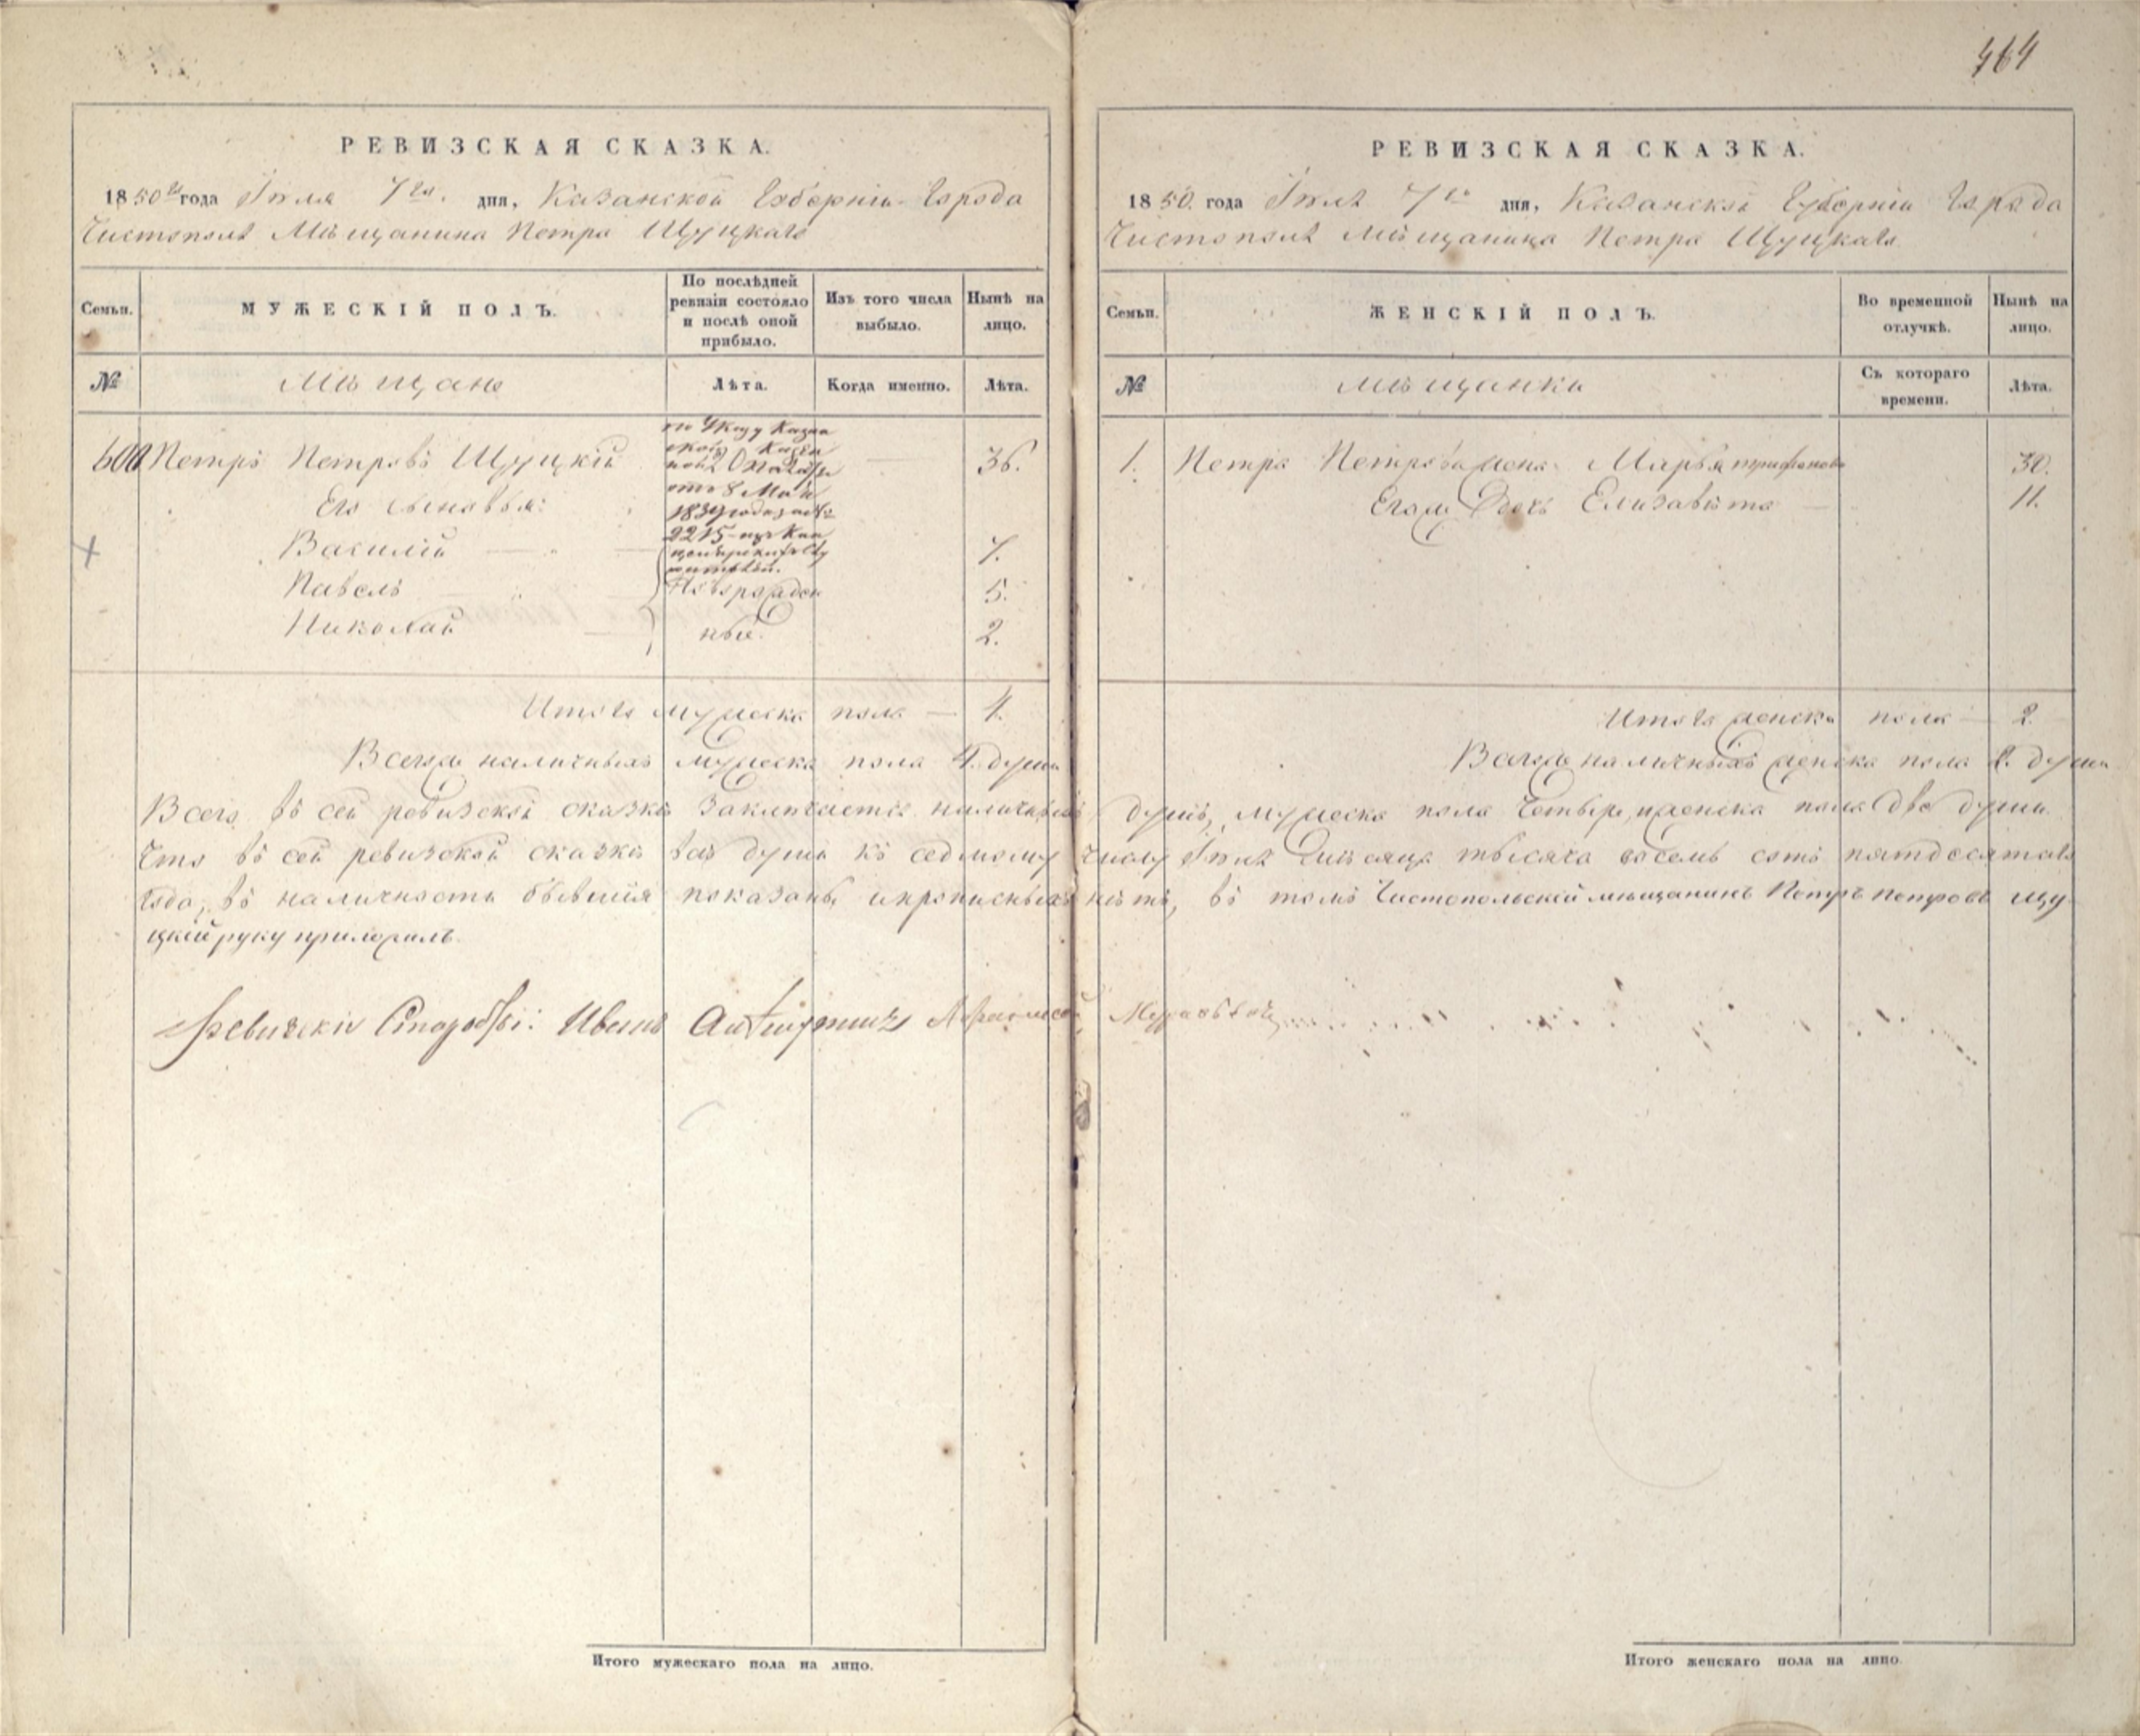 464
РЕВИЗСКАЯ СКАЗКА.
1850го года Іюля 7го. дня, Казанской Губерніи Города
Чистополя Мѣщанина Петра Щуцкаго
Семьи.
МУЖЕСКІЙ ПОЛЪ.
По послѣдней ревизіи состояло и послѣ оной прибыло.
Изъ того числа выбыло.
Нынѣ на лицо.
№
Мѣщане
Лѣта.
Когда именно.
Лѣта.
600 Петръ Петровъ Щуцкій 36.
по Указу Казан
ской Казен
ной Палаты
отъ 8 Мая
1839 года за №
2215 изъ Кан
Его сыновья:
Василій 7.
Павелъ 5.
Николай 2.
Новорожден
ные.
Итого мужеска пола — 4.
Всего наличныхъ мужеска пола 4. души
РЕВИЗСКАЯ СКАЗКА.
1850. года Іюля 7го дня, Казанской Губерніи Города
Чистополя Мѣщанина Петра Щуцкаго.
Семьи.
ЖЕНСКІЙ ПОЛЪ.
Во временной отлучкѣ.
Нынѣ на лицо.
№
Мѣщанки
Съ котораго времени.
Лѣта.
1. Петра Петрова жена Марья трифонова 30.
Егожъ Дочь Елизавѣта — 11.
Итого женска пола — 2.
Всего наличныхъ женска пола 2. души
Всего въ сей ревизской сказкѣ заключается наличныхъ душъ, мужеска пола четыре, и женска пола две души.
Что въ сей ревизской сказкѣ все души къ седмому числу Іюля мѣсяца тысяча восемь сотъ пятдесятаго
года, въ наличности бывшія показаны и прописныхъ нѣтъ, въ томъ Чистопольской мѣщанинъ Петръ Петровъ Щу-
цкій руку приложилъ.
Ревизскій Иванъ
Итого мужескаго пола на лицо.
Итого женскаго пола на лицо.